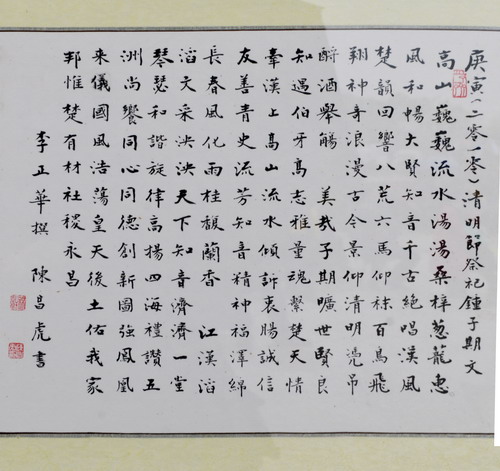 庚寅(二零一零)清明節祭祀鍾子期文
高山巍巍流水湯湯桑梓蔥蘢惠
風和暢大賢知音千古絕唱漢風
楚韻回響八荒六馬仰秣百鳥飛
翔神奇浪漫古今景仰清明凴吊
酹酒舉觴 美哉子期曠世賢良
知遇伯牙高志雅量魂繫楚天情
牽漢上高山流水傾訴衷腸誠信
友善青史流芳知音精神福澤綿
長春風化雨桂馥蘭香 江漢滔
滔文采泱泱天下知音濟濟一堂
琴瑟和諧旋律高揚四海禮讚五
洲尚饗同心同德創新圖強鳳凰
來儀國風浩蕩皇天後土佑我家
邦惟楚有材社稷永昌
李正華撰 陳昌虎書